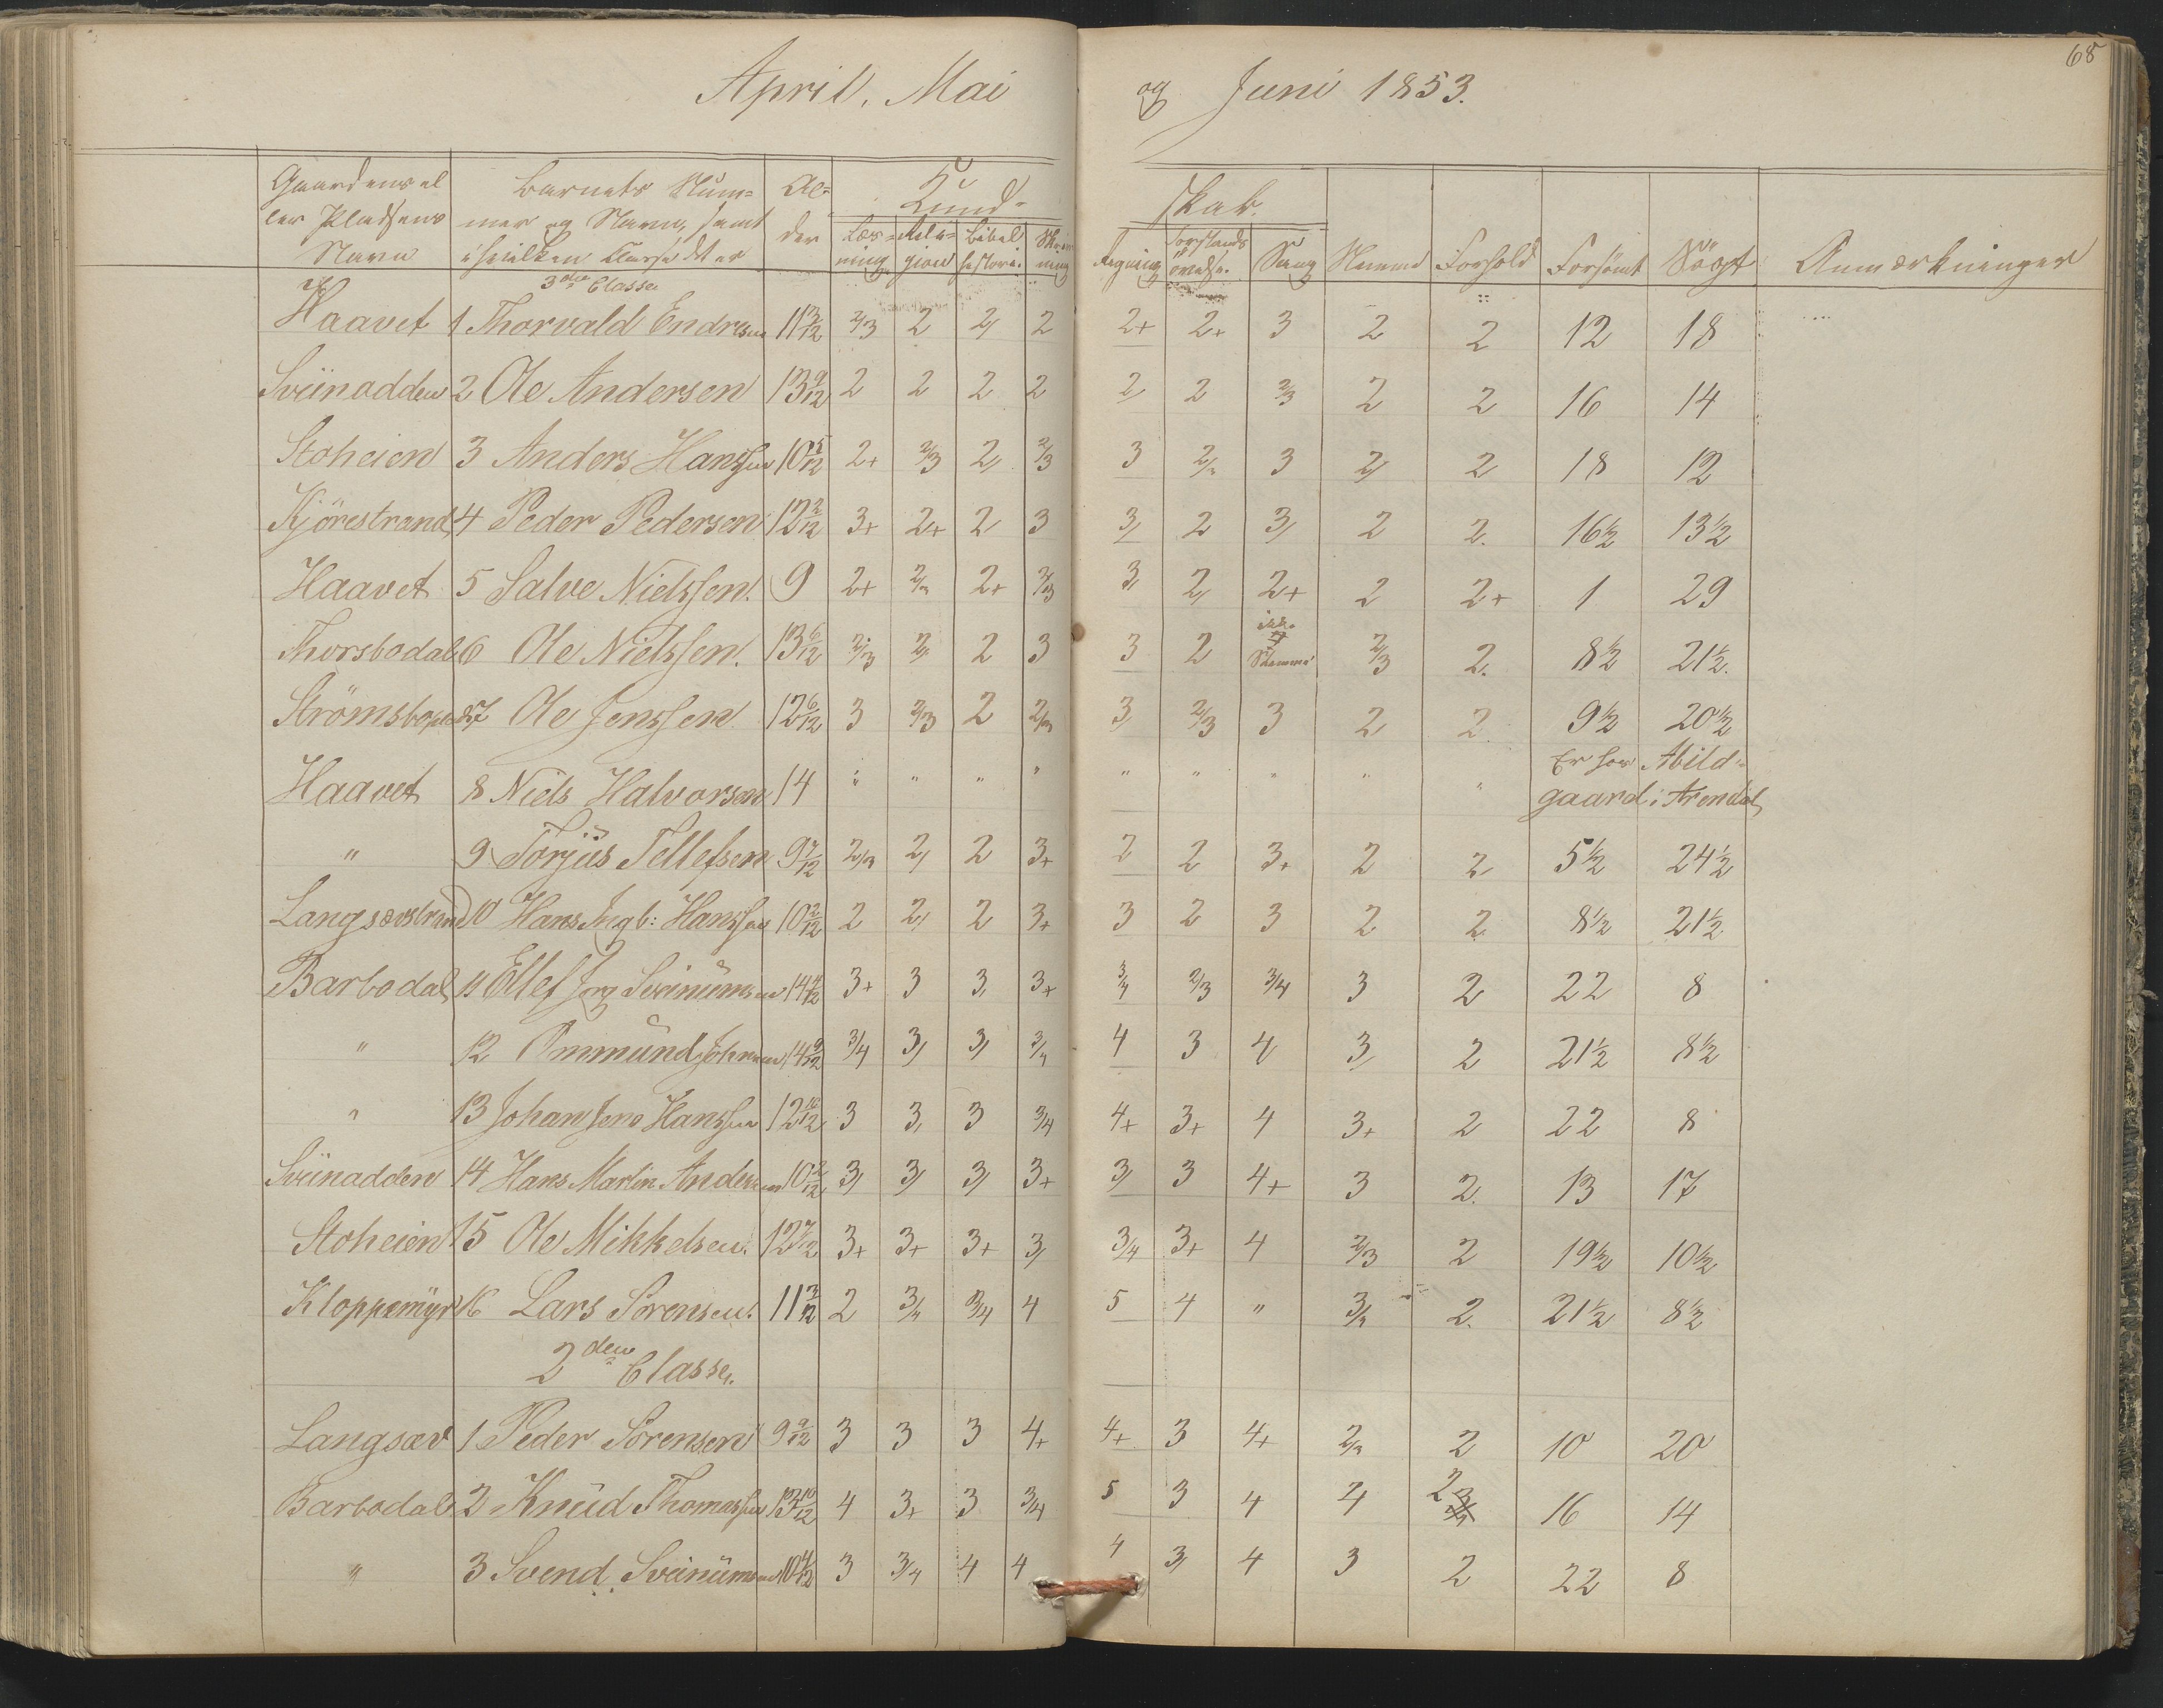 68
April, Mai og Juni 1853.
Gaardens el- Barnets Num- Al- Kund- skab.
ler Pladsens mer og Navn, samt der Læs- Reli- Bibel Skriv- Regning Forstands Sang Nemme Forhold Forsömt Sögt Anmærkninger
Navn i hvilken Classe det er ning gion historie. ning övelse.
3die Classe
Haavet 1 Thorvald Endresen 11 3/12 2/3 2 2/ 2 2+ 2+ 3 2 2 12 18
Sviinodden 2 Ole Andersen 13 9/12 2 2 2 2 2/ 2 2/3 2 2 16 14
Stoheien 3 Anders Hanssen 10 5/12 2+ 2/3 2/ 2/3 3 2/3 3 2/ 2 18 12
Kjörestrand 4 Peder Pedersen 12 2/12 3+ 2+ 2 3 3/ 2 3/ 2 2. 16½ 13½
Haavet 5 Salve Nielssen. 9 2+ 2/3 2+ 2/3 3/ 2/ 2+ 2 2+ 1 29
Thorsbodal 6 Ole Nielssen. 13 6/12 2/3 2/ 2 3 3 2 ikke Stemme 2/3 2. 8½ 21½.
Strömsbope 7 Ole Jenssen 12 6/12 3 2/3 2 2/3 3/ 2/3 3 2 2. 9½ 20½
Haavet 8 Niels Halvorsen 14 " " " " " " " " " Er hos Abild-
gaard i Arendal
" 9 Torjüs Tellefsen 9 7/12 2/3 2/ 2 3+ 2 2 3+ 2 2 5½ 24½
Langsævstrand 10 Hans Ingb: Hanssen 10 2/12 2 2/ 2 3+ 3 2 3 2 2 8½ 21½
Barbodal 11 Ellef Jörg Sveinümsen 14 4/12 3+ 3 3, 3+ 3/4 2/3 3/4 3 2 22 8
" 12 Ommund Johnsen 14 9/12 3/4 3/ 3/ 3/4 4 3 4 3/ 2 21½ 8½
" 13 Johan Jens Hanssen 12 10/12 3 3, 3 3/4 4+ 3+ 4 3+ 2 22 8
Sviinadden 14 Hans Martin Andersen 10 2/12 3/ 3/ 3/ 3+ 3/ 3 4+ 3 2. 13 17
Stoheien 15 Ole Mikkelsen. 12 7/12 3+ 3+ 3+ 3/ 3/4 3+ 4 2/3 2 19½ 10½
Kloppemÿr 16 Lars Sörensen. 11 3/12 2 3/4 3/4 4 5 4 " 3/4 2. 21½ 8½
2den Classe.
Langsæv 1 Peder Sörensen 9 9/12 3 3 3 4+ 4+ 3 4+ 2/3 2 10 20
Barbodal 2 Knüd Thomassen 13 10/12 4 3+ 3 3/4 5 3 4 4 2 16 14
" 3 Svend Sveinümsen 10 4/12 3 3/4 4 4 4 3/ 4 3 2 22 8